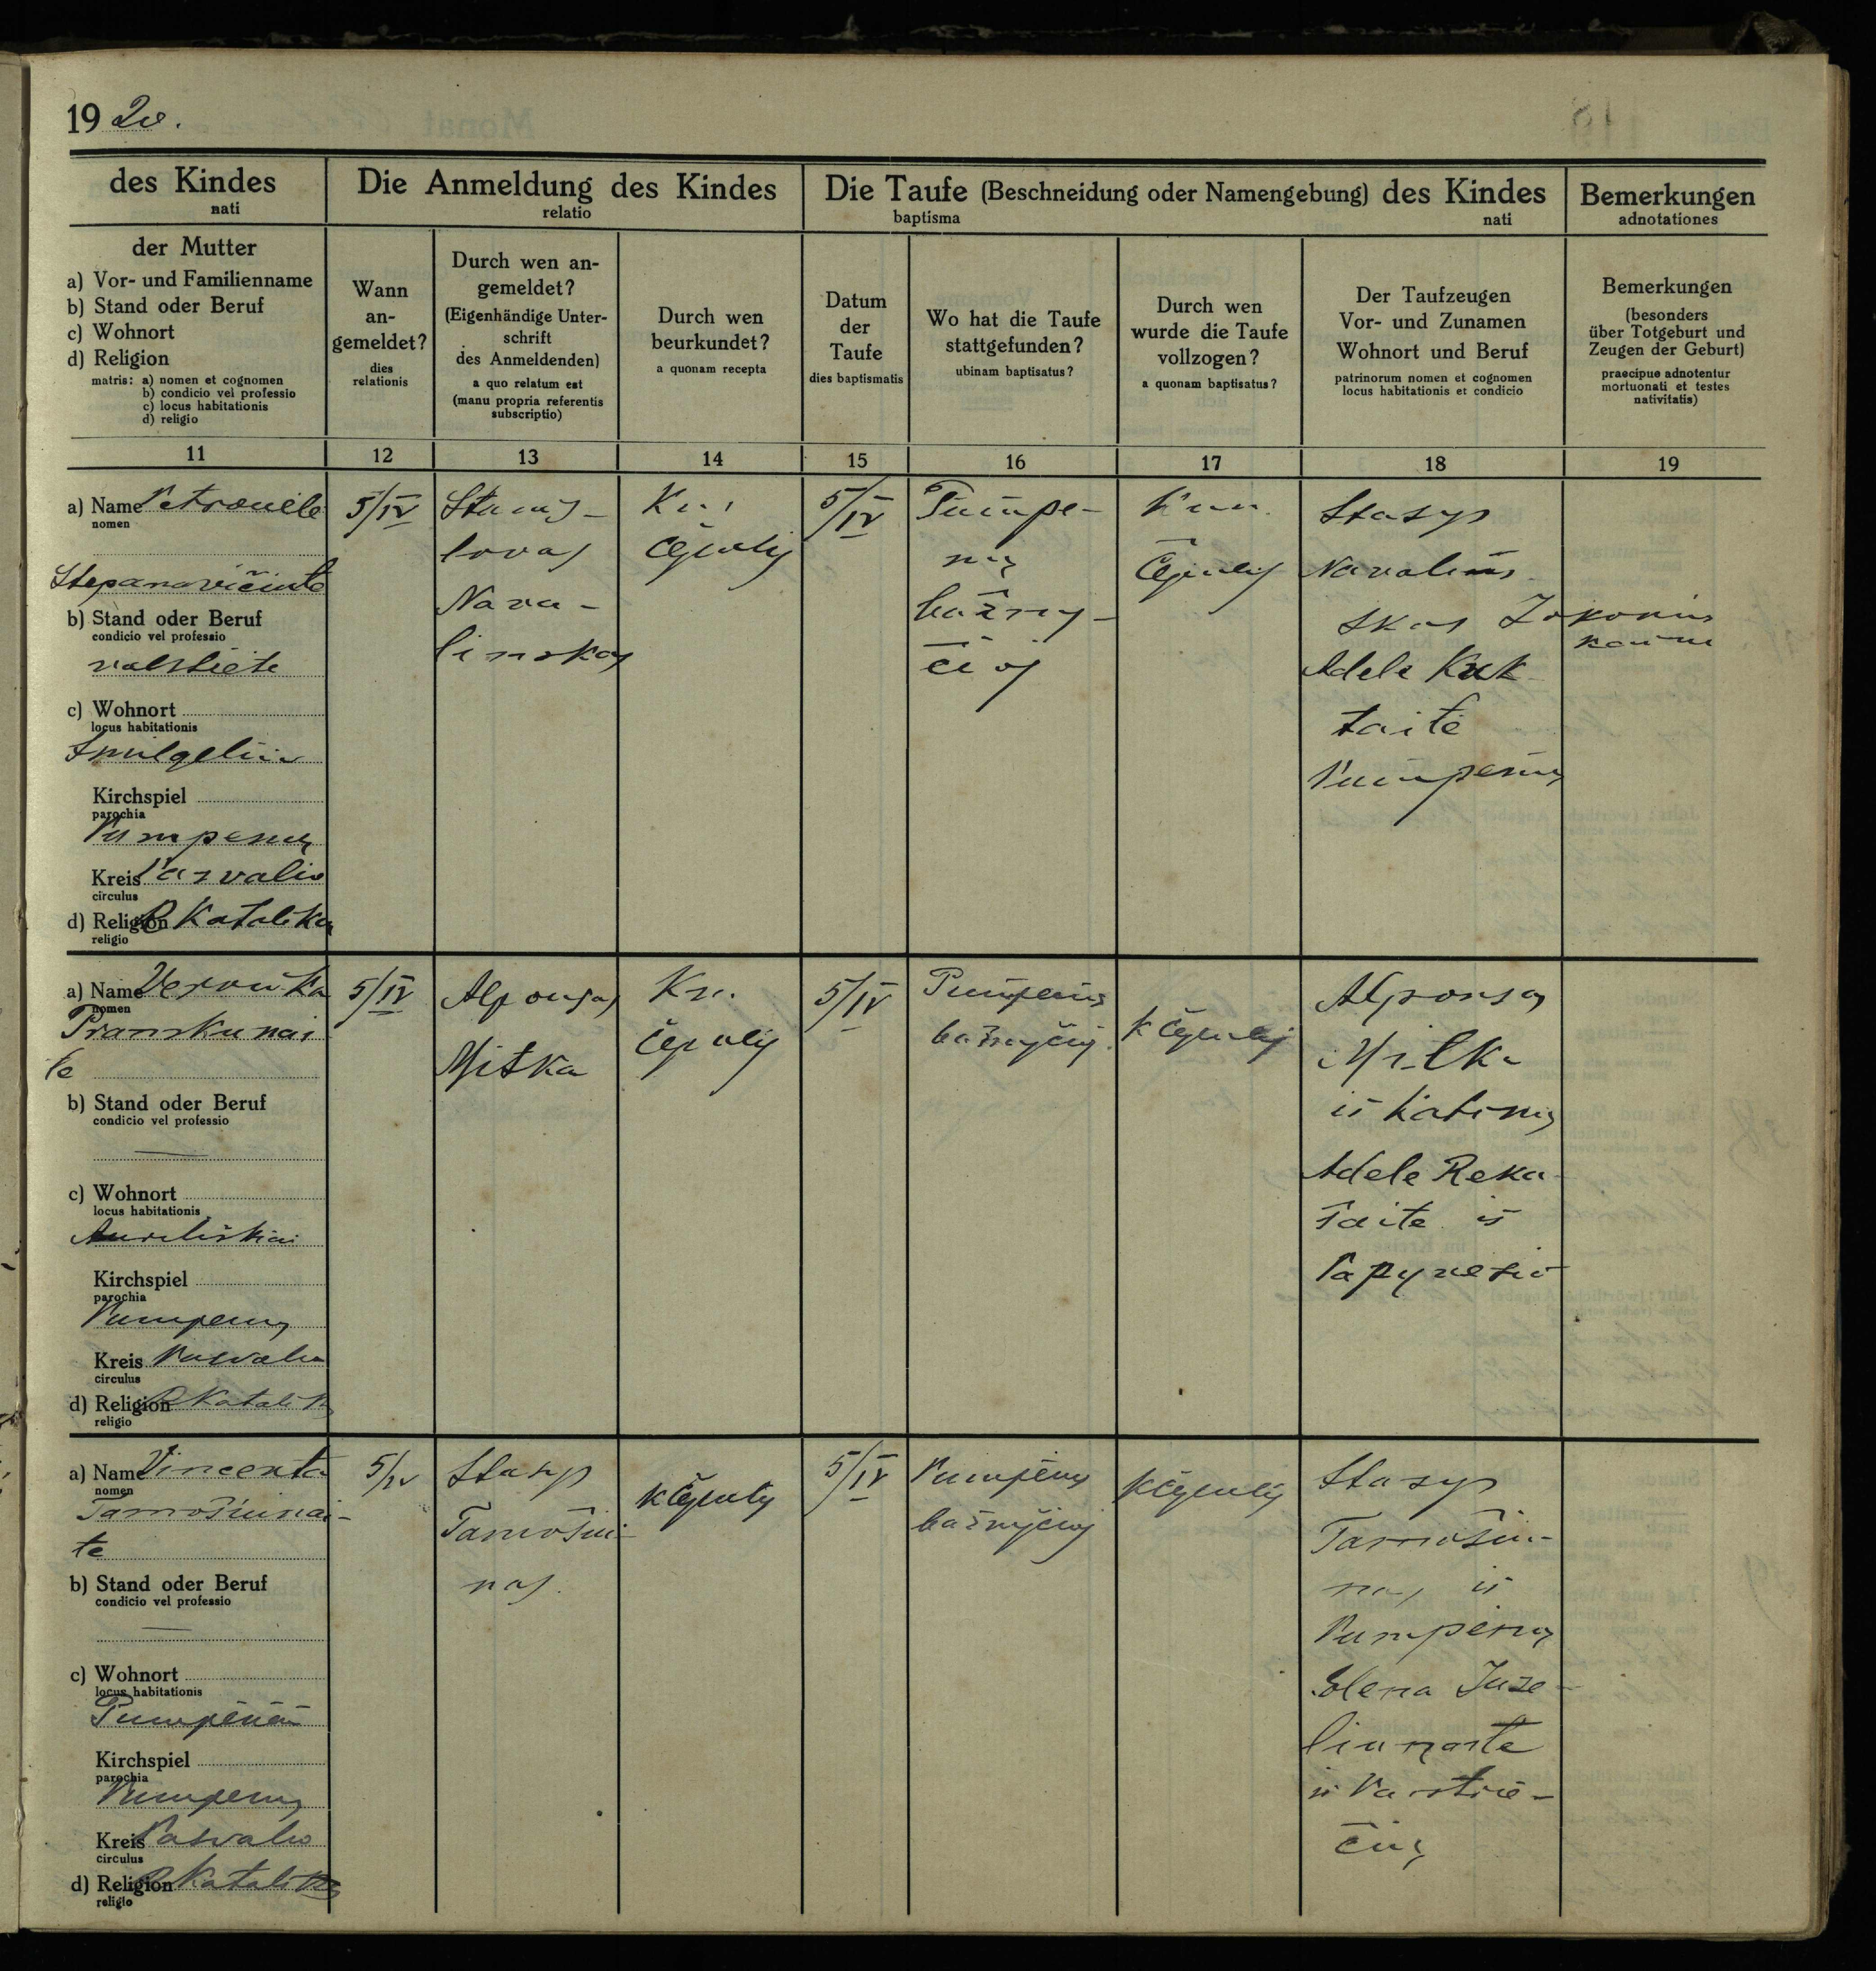 19 20.
des Kindes
nati
Die Anmeldung des Kindes
relatio
Die Taufe (Beschneidung oder Namengebung) des Kindes
baptisma nati
Bemerkungen
adnotationes
der Mutter
a) Vor- und Familienname
b) Stand oder Beruf
c) Wohnort
d) Religion
matris: a) nomen et cognomen
b) condicio vel professio
c) locus habitationis
d) religio
Wann
an-
gemeldet?
dies
relationis
Durch wen an-
gemeldet?
(Eigenhändige Unter-
schrift
des Anmeldenden)
a quo relatum est
(manu propria referentis
subscriptio)
Durch wen
beurkundet?
a quonam recepta
Datum
der
Taufe
dies baptismatis
Wo hat die Taufe
stattgefunden?
ubinam baptisatus?
Durch wen
wurde die Taufe
vollzogen?
a quonam baptisatus?
Der Taufzeugen
Vor- und Zunamen
Wohnort und Beruf
patrinorum nomen et cognomen
locus habitationis et condicio
Bemerkungen
(besonders
über Totgeburt und
Zeugen der Geburt)
praecipue adnotentur
mortuonati et testes
nativitatis)
11 12 13 14 15 16 17 18 19
a) Name Petronele
nomen
Stepanavičiute
b) Stand oder Beruf
condicio vel professio
valstiete
c) Wohnort
locus habitationis
Smilgeliu
Kirchspiel
parochia
Pumpenų
Kreis Pasvalio
circulus
d) Religion R Katalikų
religio
5/IV
Stanis-
lovas
Nava-
linskas
Kun.
5/IV
Pumpe-
nų
bažny-
čioj
Kun.
Stasys
Navalins
kas
Adele Kuk
taitė
Pumpenų
a) Name Veronika
nomen
Pranskunai
te
b) Stand oder Beruf
condicio vel professio
—
c) Wohnort
locus habitationis
Kirchspiel
parochia
Pumpenų
Kreis Pasvalio
circulus
d) Religion R Katalikų
religio
5/IV
Alponsas
Mitka
Kn.
5/IV
Pumpenų
bažnyčioj
Alponsas
Mitka
iš
Adele Reka
šaite iš
a) Name Vincenta
nomen
Tamošiunai-
te
b) Stand oder Beruf
condicio vel professio
—
c) Wohnort
locus habitationis
Pumpėnai
Kirchspiel
parochia
Pumpenų
Kreis Pasvalio
circulus
d) Religion R Katalikų
religio
5/IV
Stasys
Tamošiu-
nas.
5/IV
Pumpėnų
bažnyčioj
Stasys
Tamošiu-
nas iš
Pumpėnų
Elena Juze-
iš